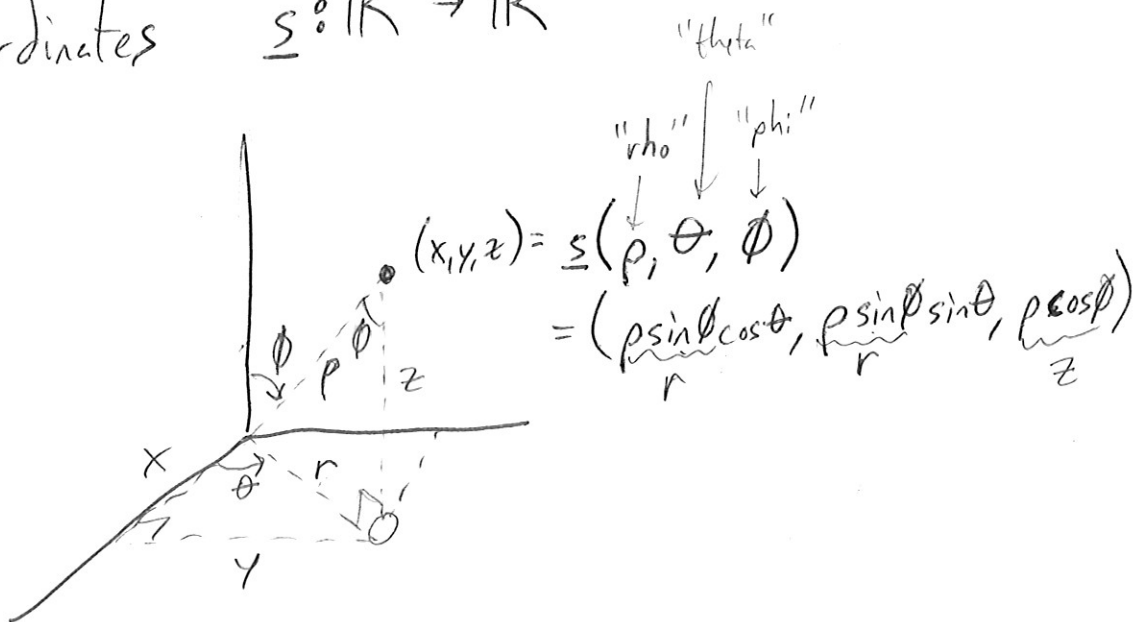 rdinates s : ℝ → ℝ
"theta"
"rho" "phi"
(x,y,z) = s(ρ, θ, ϕ)
= (ρsinϕcosθ, ρsinϕsinθ, ρcosϕ)
r r z
ϕ
ϕ
ρ
z
x
θ
r
y